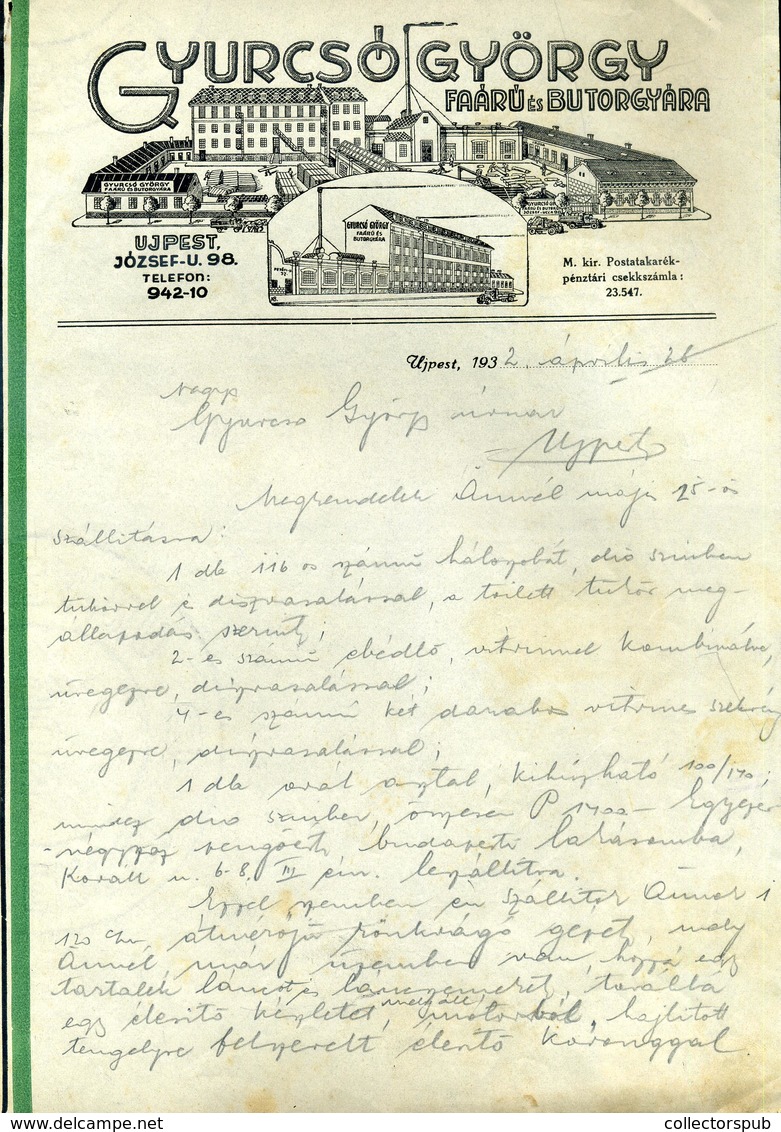 GYURCSÓ GYÖRGY
FAÁRÚ ÉS BUTORGYÁRA
GYURCSÓ GYÖRGY
FAÁRÚ ÉS BUTORGYÁRA
GYURCSÓ GYÖRGY
FAÁRÚ ÉS
BUTORGYÁRA
UJPEST,
JÓZSEF-U. 98.
TELEFON:
942-10
M. kir. Postatakarék-
pénztári csekkszámla:
23.547.
Ujpest, 1932. április 26
Nagys
Gyurcsó György úrnak
Ujpest
Megrendelek Önnél május 25-ös
szállitásra:
1 db 116 os számú hálószobát, dió szinben
tükörrel és diszvasalással, a toilett tükör meg-
állapodás szerint;
2-es számú ebédlő, vitrinnel kombinálva,
üvegezve, diszvasalással;
4-es számú két darabos vitrines szekrény
üvegezve, diszvasalással;
1 db ovál asztal, kihúzható 100/170;
mindez dió szinben, összesen P 1400- Egyezer-
négyszáz pengőért, budapesti lakásomba,
u. 6-8. III em. leszállitva.
Ezzel szemben én szállitok Önnek 1
120 cm. átmérőjü rönkvágó gépet, mely
Önnél már üzemben van, hozzá egy
tartalék láncot és láncszemeket, továbbá
egy élesitő készletet, mely áll: motorból, hajlitott
tengelyre felszerelt élesitő koronggal
collectorspub